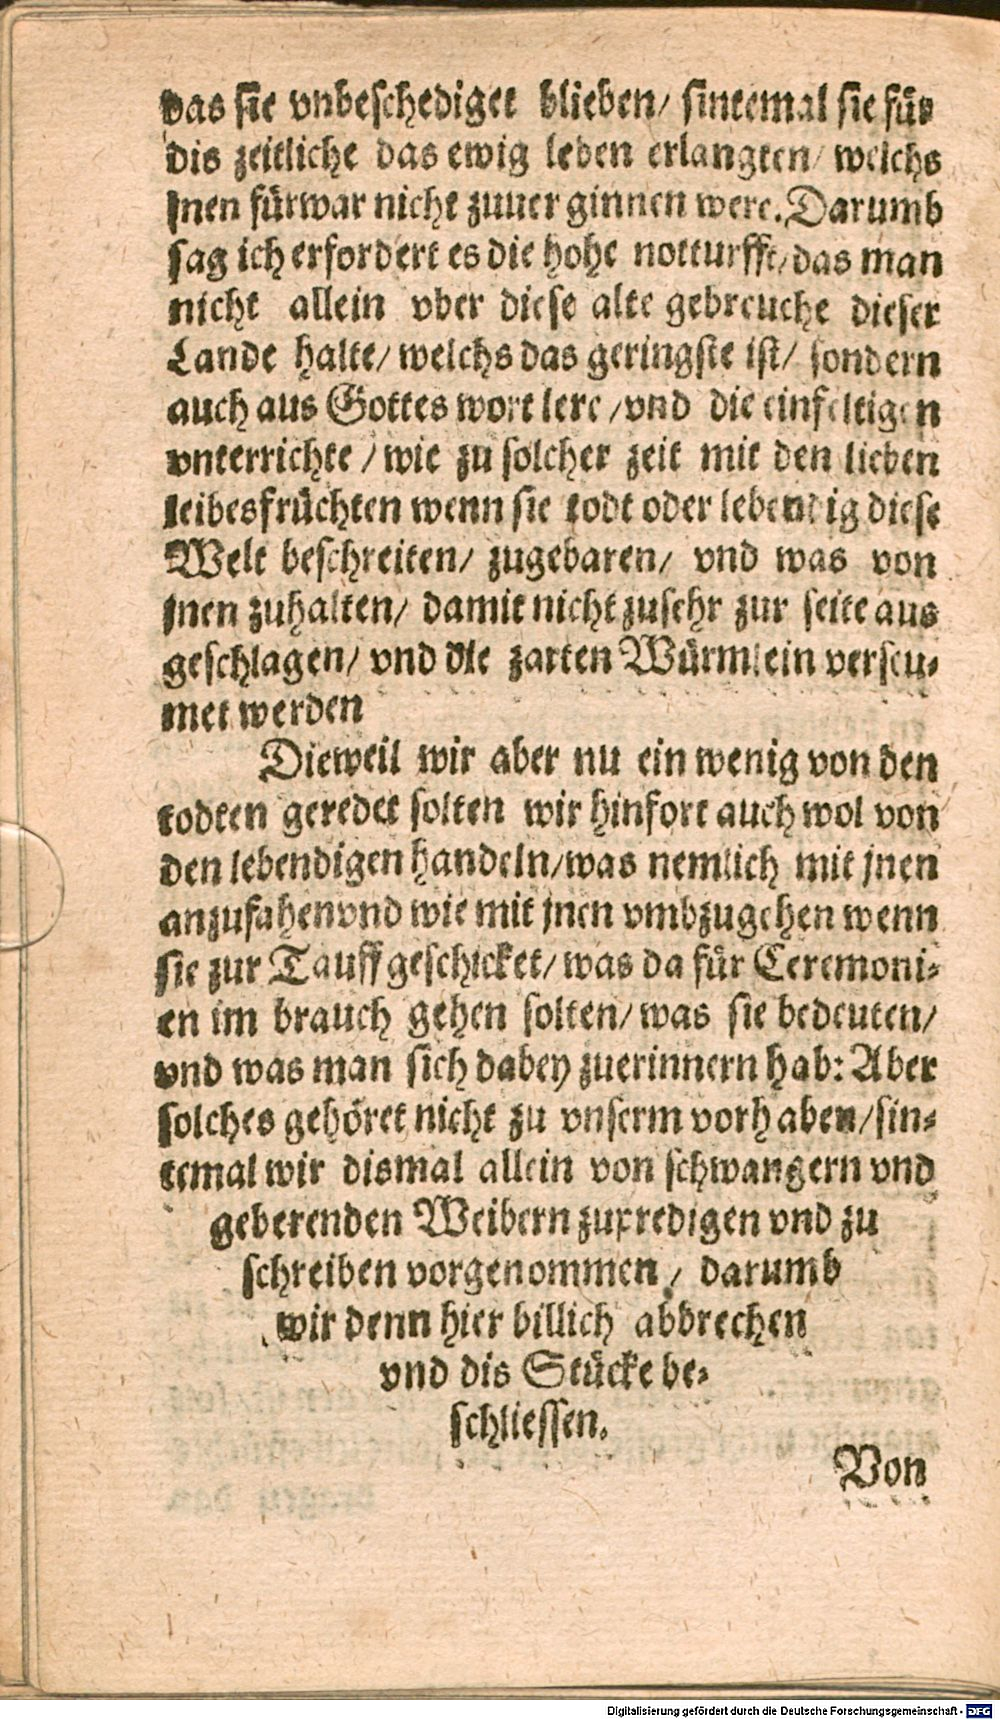 das sie vnbeschediget blieben/ sintemal sie für
dis zeitliche das ewig leben erlangten/ welchs
jnen fürwar nicht zuuer ginnen were. Darumb
sag ich erfordert es die hohe notturfft/ das man
nicht allein vber diese alte gebreuche dieser
Lande halte/ welchs das geringste ist/ sondern
auch aus Gottes wort lere /vnd die einfeltigen
vnterrichte / wie zu solcher zeit mit den lieben
leibesfrüchten wenn sie todt oder lebendig diese
Welt beschreiten/ zugebaren/ vnd was von
jnen zuhalten/ damit nicht zusehr zur seite aus
geschlagen/ vnd die zarten Würmlein verseu⸗
met werden
Dieweil wir aber nu ein wenig von den
todten geredet solten wir hinfort auch wol von
den lebendigen handeln/was nemlich mit jnen
anzufahenvnd wie mit jnen vmbzugehen wenn
sie zur Tauff geschicket/ was da für Ceremoni⸗
en im brauch gehen solten/ was sie bedeuten/
vnd was man sich dabey zuerinnern hab: Aber
solches gehöret nicht zu vnserm vorhaben/sin⸗
temal wir dismal allein von schwangern vnd
geberenden Weibern zupredigen vnd zu
schreiben vorgenommen / darumb
wir denn hier billich abbrechen
vnd dis Stücke be⸗
schliessen.
Von
Digitalisierung gefördert durch die Deutsche Forschungsgemeinschaft - DFG